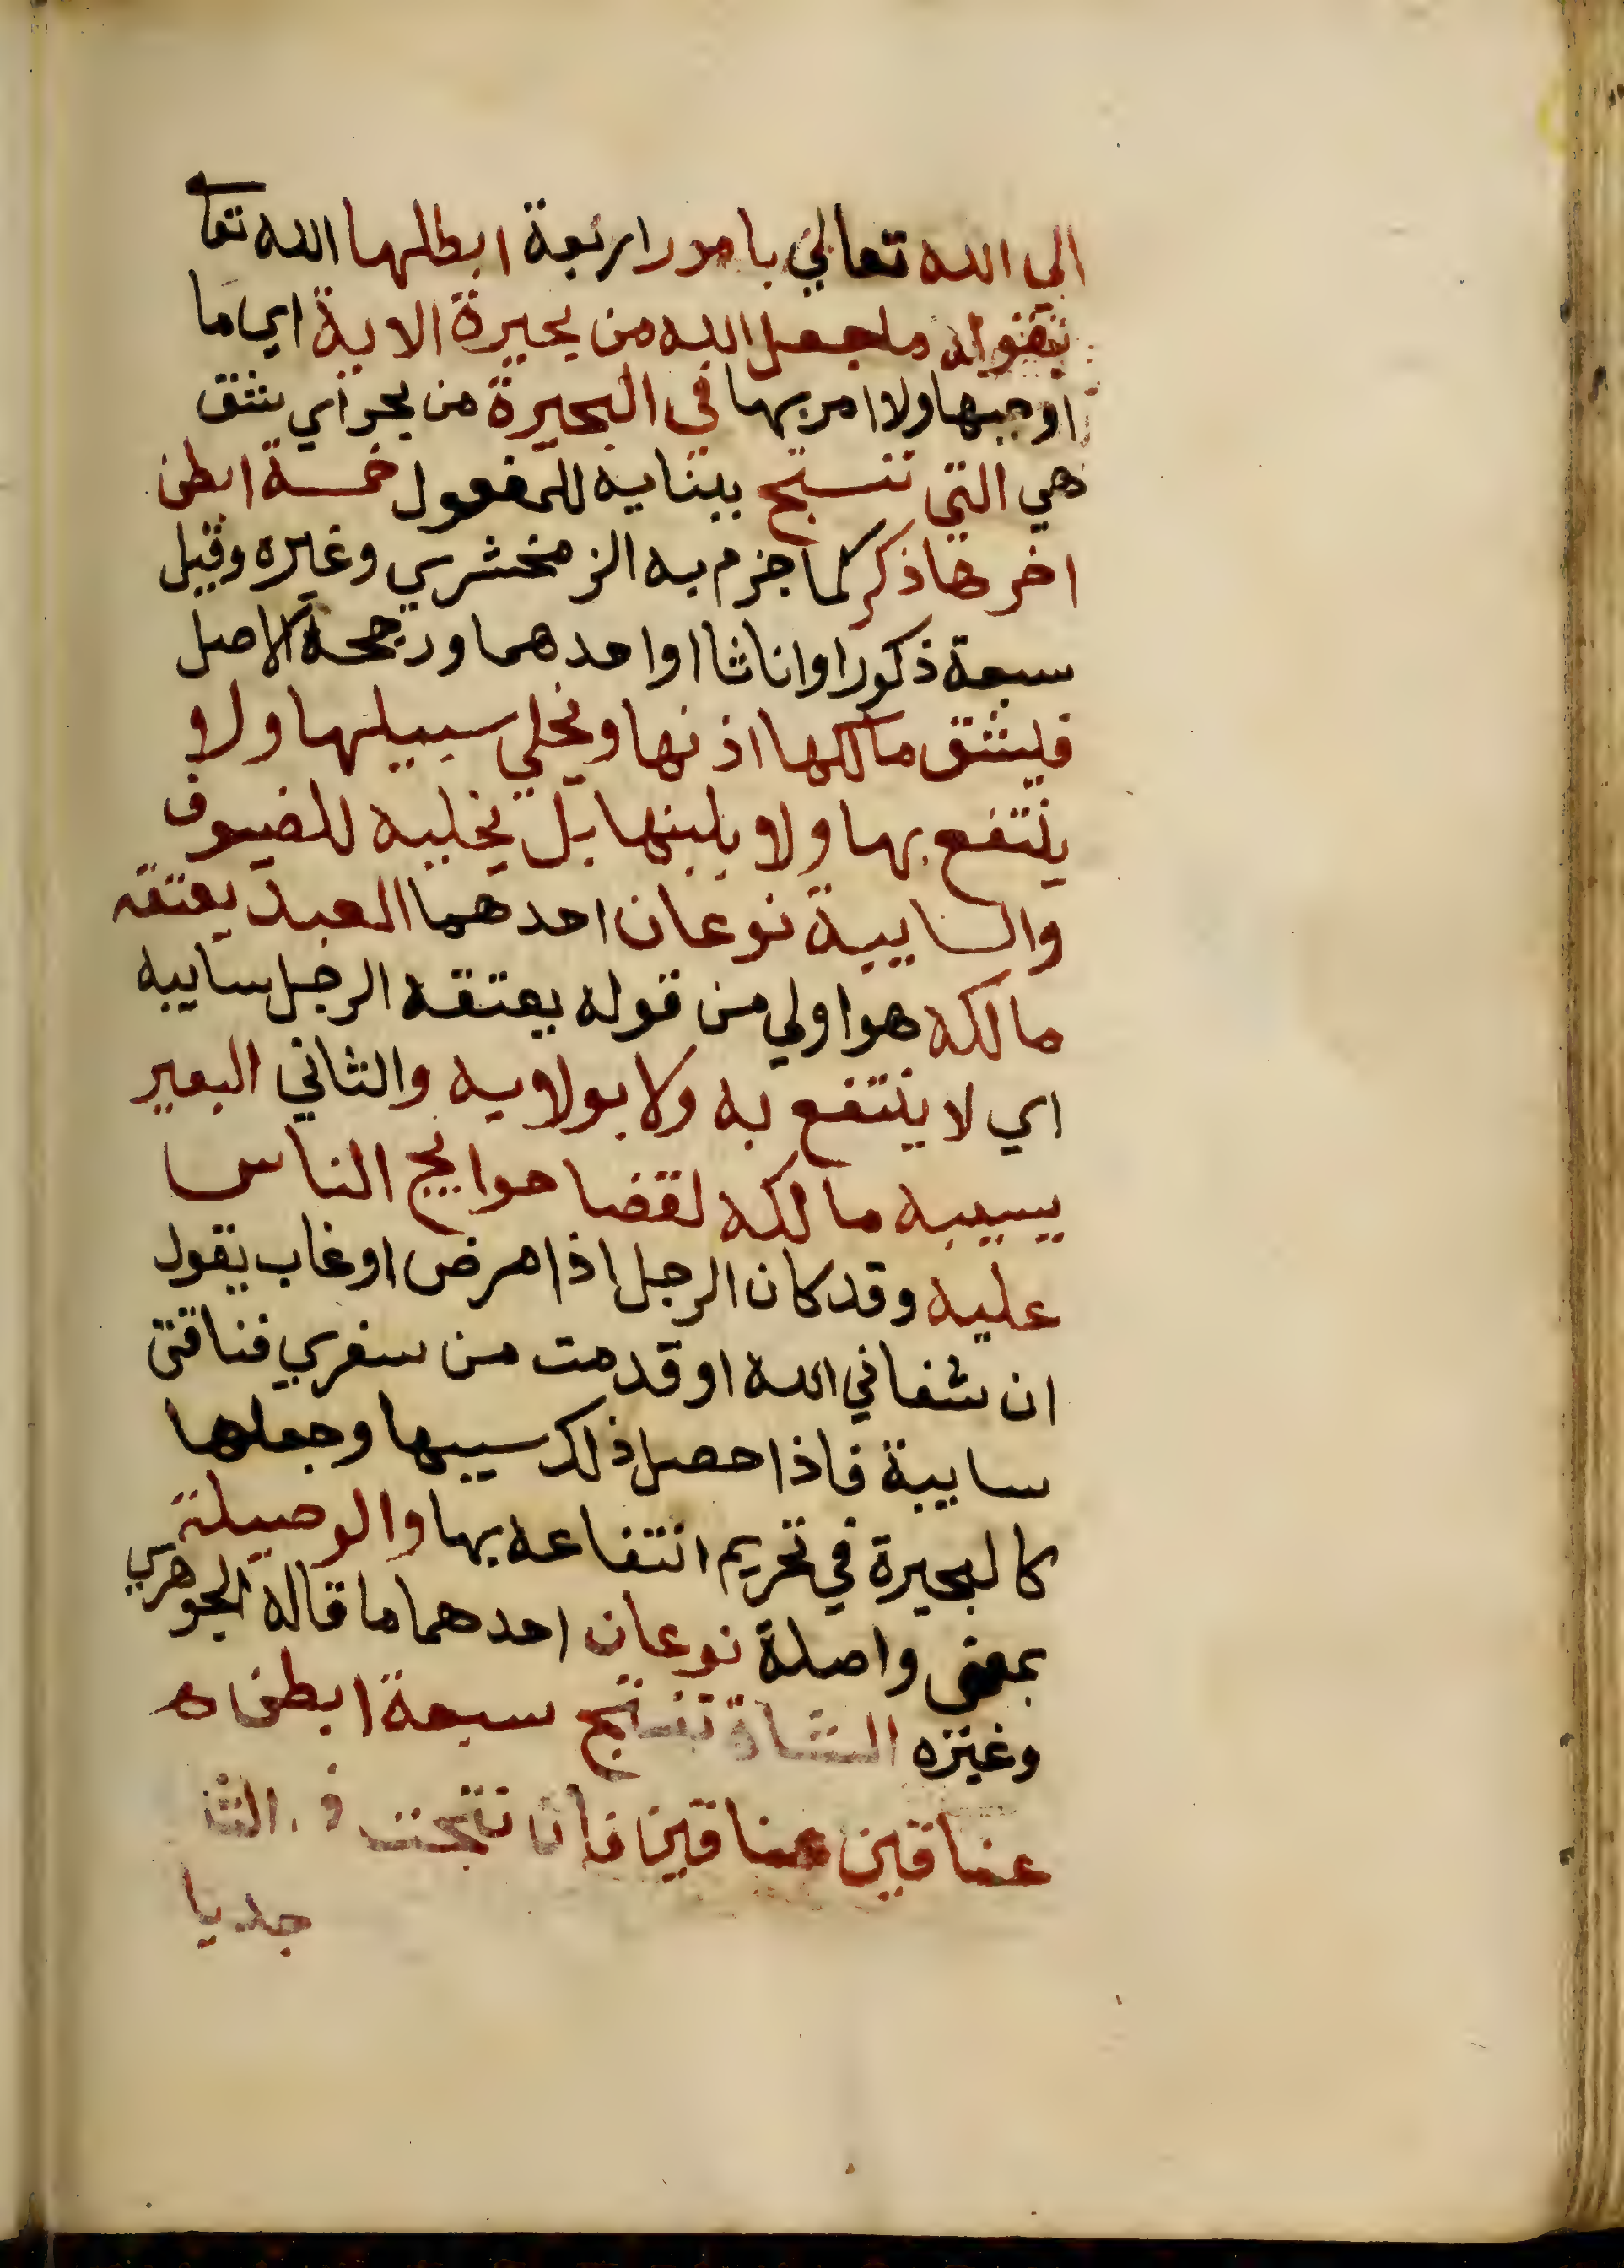 الى الله تعالي بامور اربعة ابطلها الله تعا
بقوله ما جعل الله من بحيرة الاية اي ما
اوجبها ولا امر بها في البحيرة من بحر اي شق
هي التي تنتج ببنايه للمفعول خمسة ابطن
اخرها ذكر كما جزم به الزمخشري وغيره وقيل
سبعة ذكورا واناثا او احدهما ورجحه الاصل
فيشق مالكها اذنها ويخلي سبيلها ولا
ينتفع بها ولا بلبنها بل يخليه للضيوف
والسايبة نوعان احدهما العبد يعتقه
مالكه هو اولي من قوله يعتقه الرجل سايبه
اي لا ينتفع به ولا بولايه والثاني البعير
يسيبه مالكه لقضا حوايج الناس
عليه وقد كان الرجل اذا مرض او غاب يقول
ان شفاني الله او قدمت من سفري فناقتي
سايبة فاذا حصل ذلك سيبها وجعلها
كالبحيرة في تحريم انتفاعه بها والوصيلة
بمعنى واصلة نوعان احدهما ما قاله الجوهري
وغيره الشاة تنتج سبعة ابطن
عناقين عناقين فان نتجت في الثا
جديا